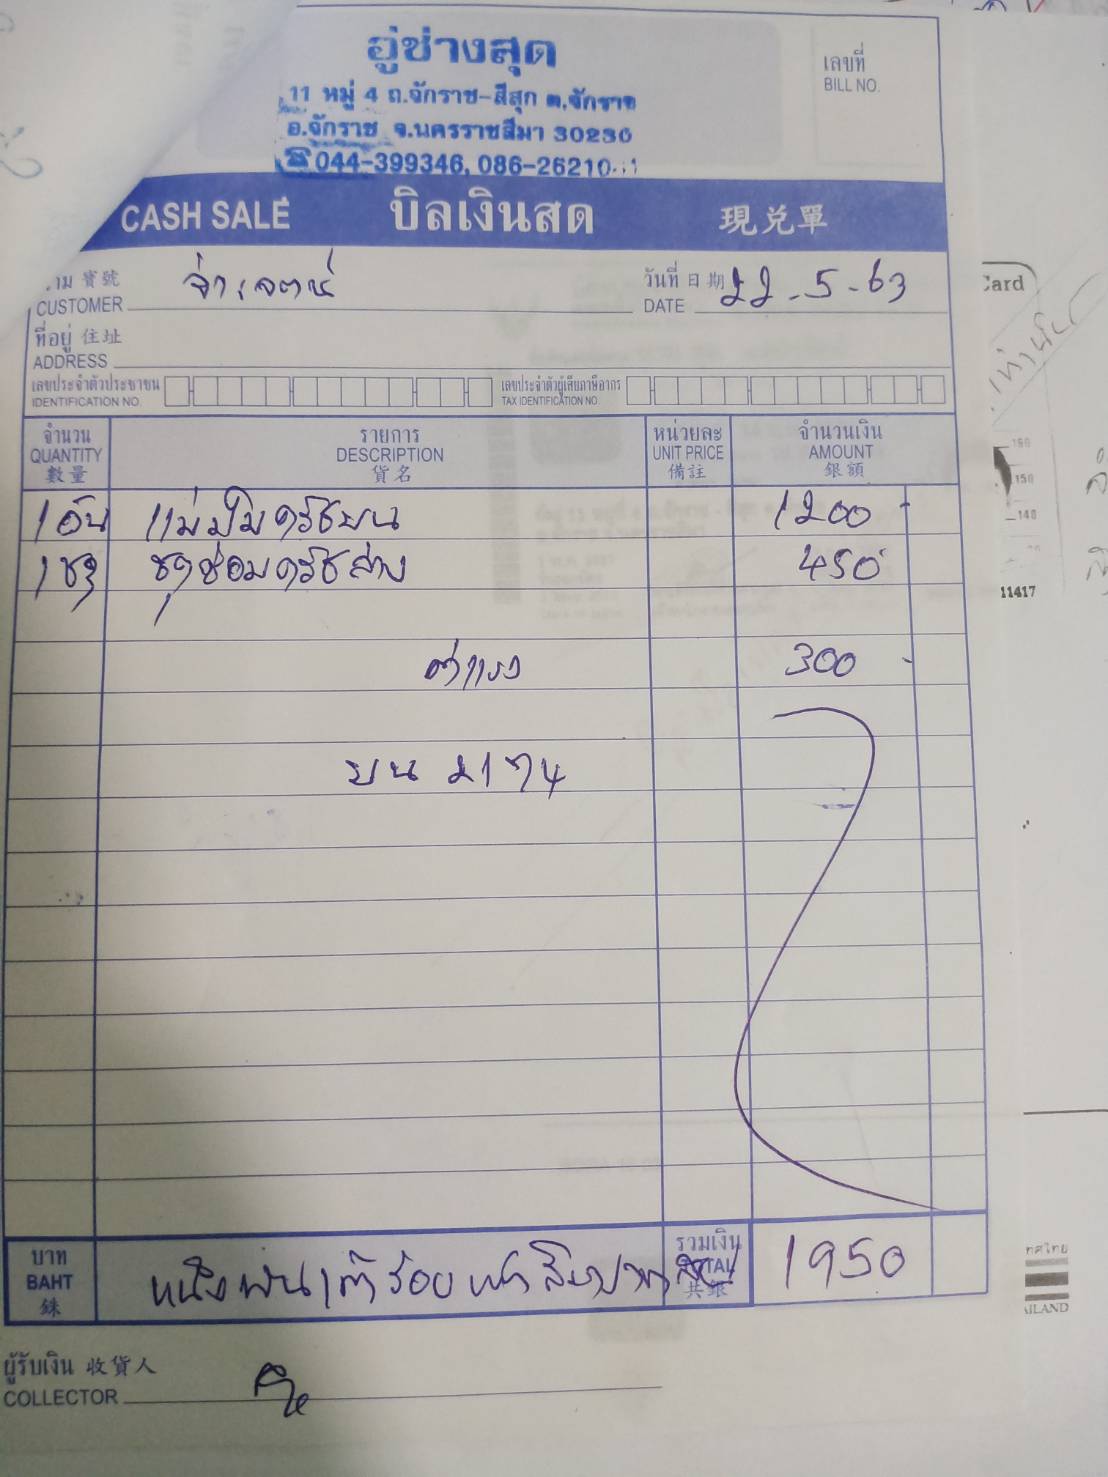 อู่ช่างสุด
11 หมู่ 4 ถ.จักราช-สีสุก ต.จักราช
อ.จักราช จ.นครราชสีมา 30230
☎044-399346, 086-26210
เลขที่
BILL NO.
CASH SALE บิลเงินสด 現兑單
าม 賓號
CUSTOMER จ่าเจตน์
วันที่ 日期 22-5-63
DATE
ที่อยู่ 住址
ADDRESS
เลขประจำตัวประชาชน
IDENTIFICATION NO.
เลขประจำตัวผู้เสียภาษีอากร
TAX IDENTIFICATION NO.
จำนวน รายการ หน่วยละ จำนวนเงิน
QUANTITY DESCRIPTION UNIT PRICE AMOUNT
數量 貨名 備註 銀額
1 อัน แม่ปั๊มครัชบน 1200 -
1 ชุด ชุดซ่อมครัชล่าง 450
ค่าแรง 300 -
บน 2174
บาท
BAHT
銖
หนึ่งพันเก้าร้อยห้าสิบบาท
รวมเงิน
TOTAL
共銀
1950
ผู้รับเงิน 收貨人
COLLECTOR
Card
160
150
140
11417
ทศไทย
AILAND